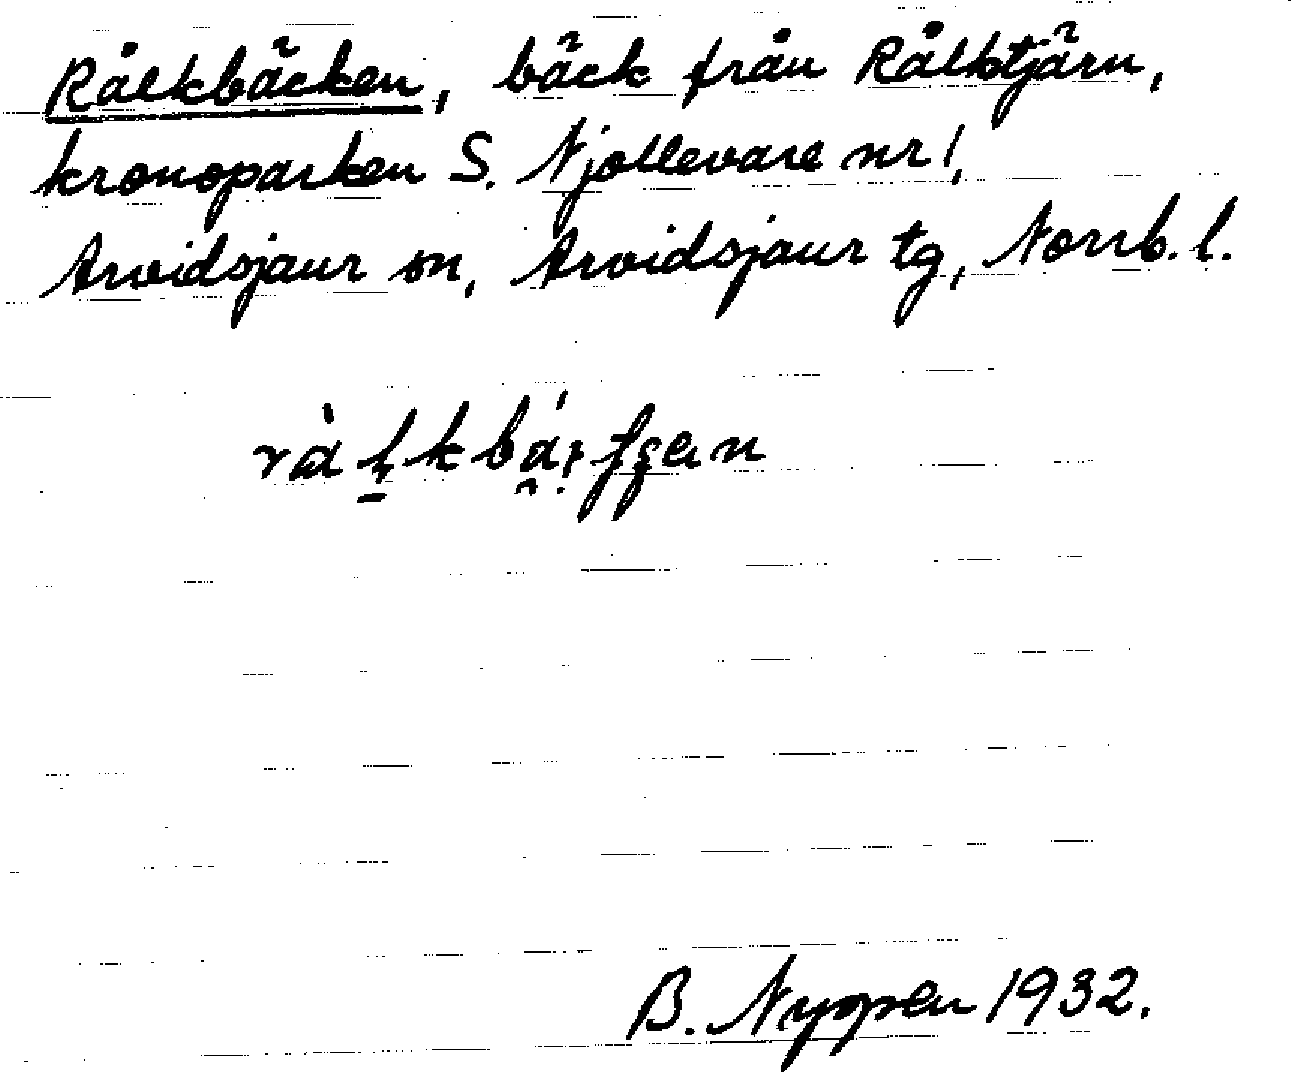 Rålkbäcken, bäck från Rålktjärn,
kronoparken S. Njallevare nr 1,
Arvidsjaur sn, Arvidsjaur tg, Norrb. l.
B. Nyppen 1932.